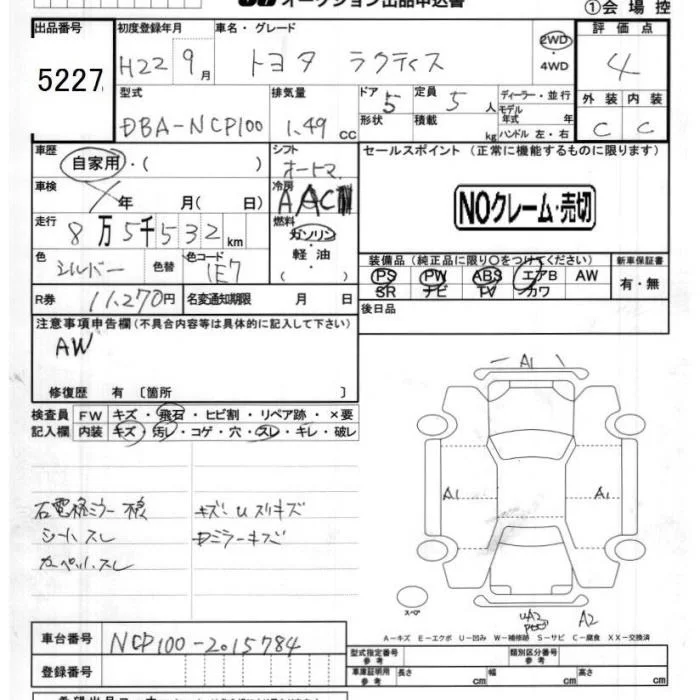 オークション出品申込書
①会場控
出品番号 初度登録年月 車名・グレード 評価点
5227 H22 9月 トヨタ ラクティス 2WD・4WD 4
型式 排気量 ドア 5 定員 5人 ディーラー・並行 外装 内装
DBA-NCP100 1.49cc 形状 積載 kg モデル年式 年 C C
ハンドル 左・右
車歴 自家用・( ) シフト オートマ セールスポイント (正常に機能するものに限ります)
車検 年 月( 日) 冷房 AAC NOクレーム・売切
走行 8万5千532km 燃料 ガソリン・軽油( )
色 シルバー 色替 色コード 1E7 装備品(純正品に限り○をつけてください) 新車保証書
PS PW ABS エアB AW 有・無
SR ナビ TV カワ
R券 11,270円 名変通知期限 月 日 後日品
注意事項申告欄(不具合内容等は具体的に記入して下さい)
AW
修復歴 有 〔箇所 〕
検査員 FW キズ・飛石・ヒビ割・リペア跡・×要
記入欄 内装 キズ・汚レ・コゲ・穴・スレ・キレ・破レ
A1
A1 A1
シートスレ
カーペットスレ
スペア
A2
A-キズ E-エクボ U-凹み W-補修跡 S-サビ C-腐食 XX-交換済
車台番号 NCP100-2015784
登録番号
型式指定番号 参考 類別区分番号 参考
車庫証明用 参考 長さ cm 幅 cm 高さ cm